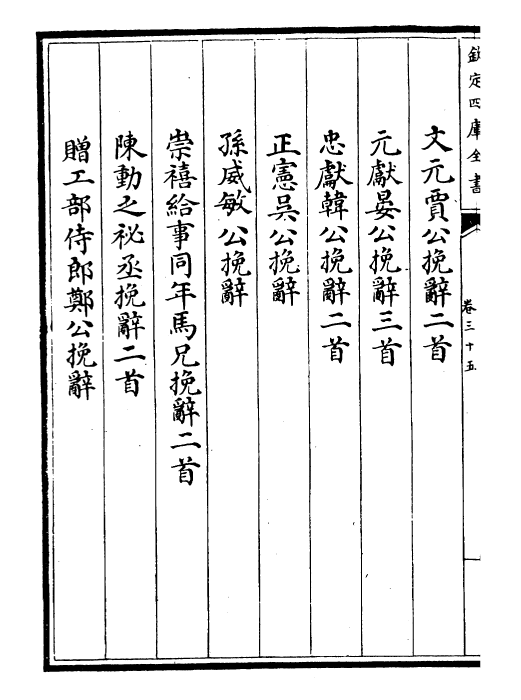 欽定四庫全書
卷三十五
文元賈公挽辭二首
元獻晏公挽辭三首
忠獻韓公挽辭二首
正憲吳公挽辭
孫威敏公挽辭
崇禧給事同年馬兄挽辭二首
陳動之祕丞挽辭二首
贈工部侍郎鄭公挽辭